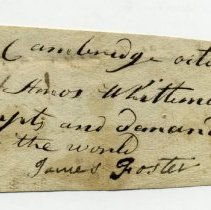 Cambridge octo
Amos Whittem
epts and Demand
the world
James Foster